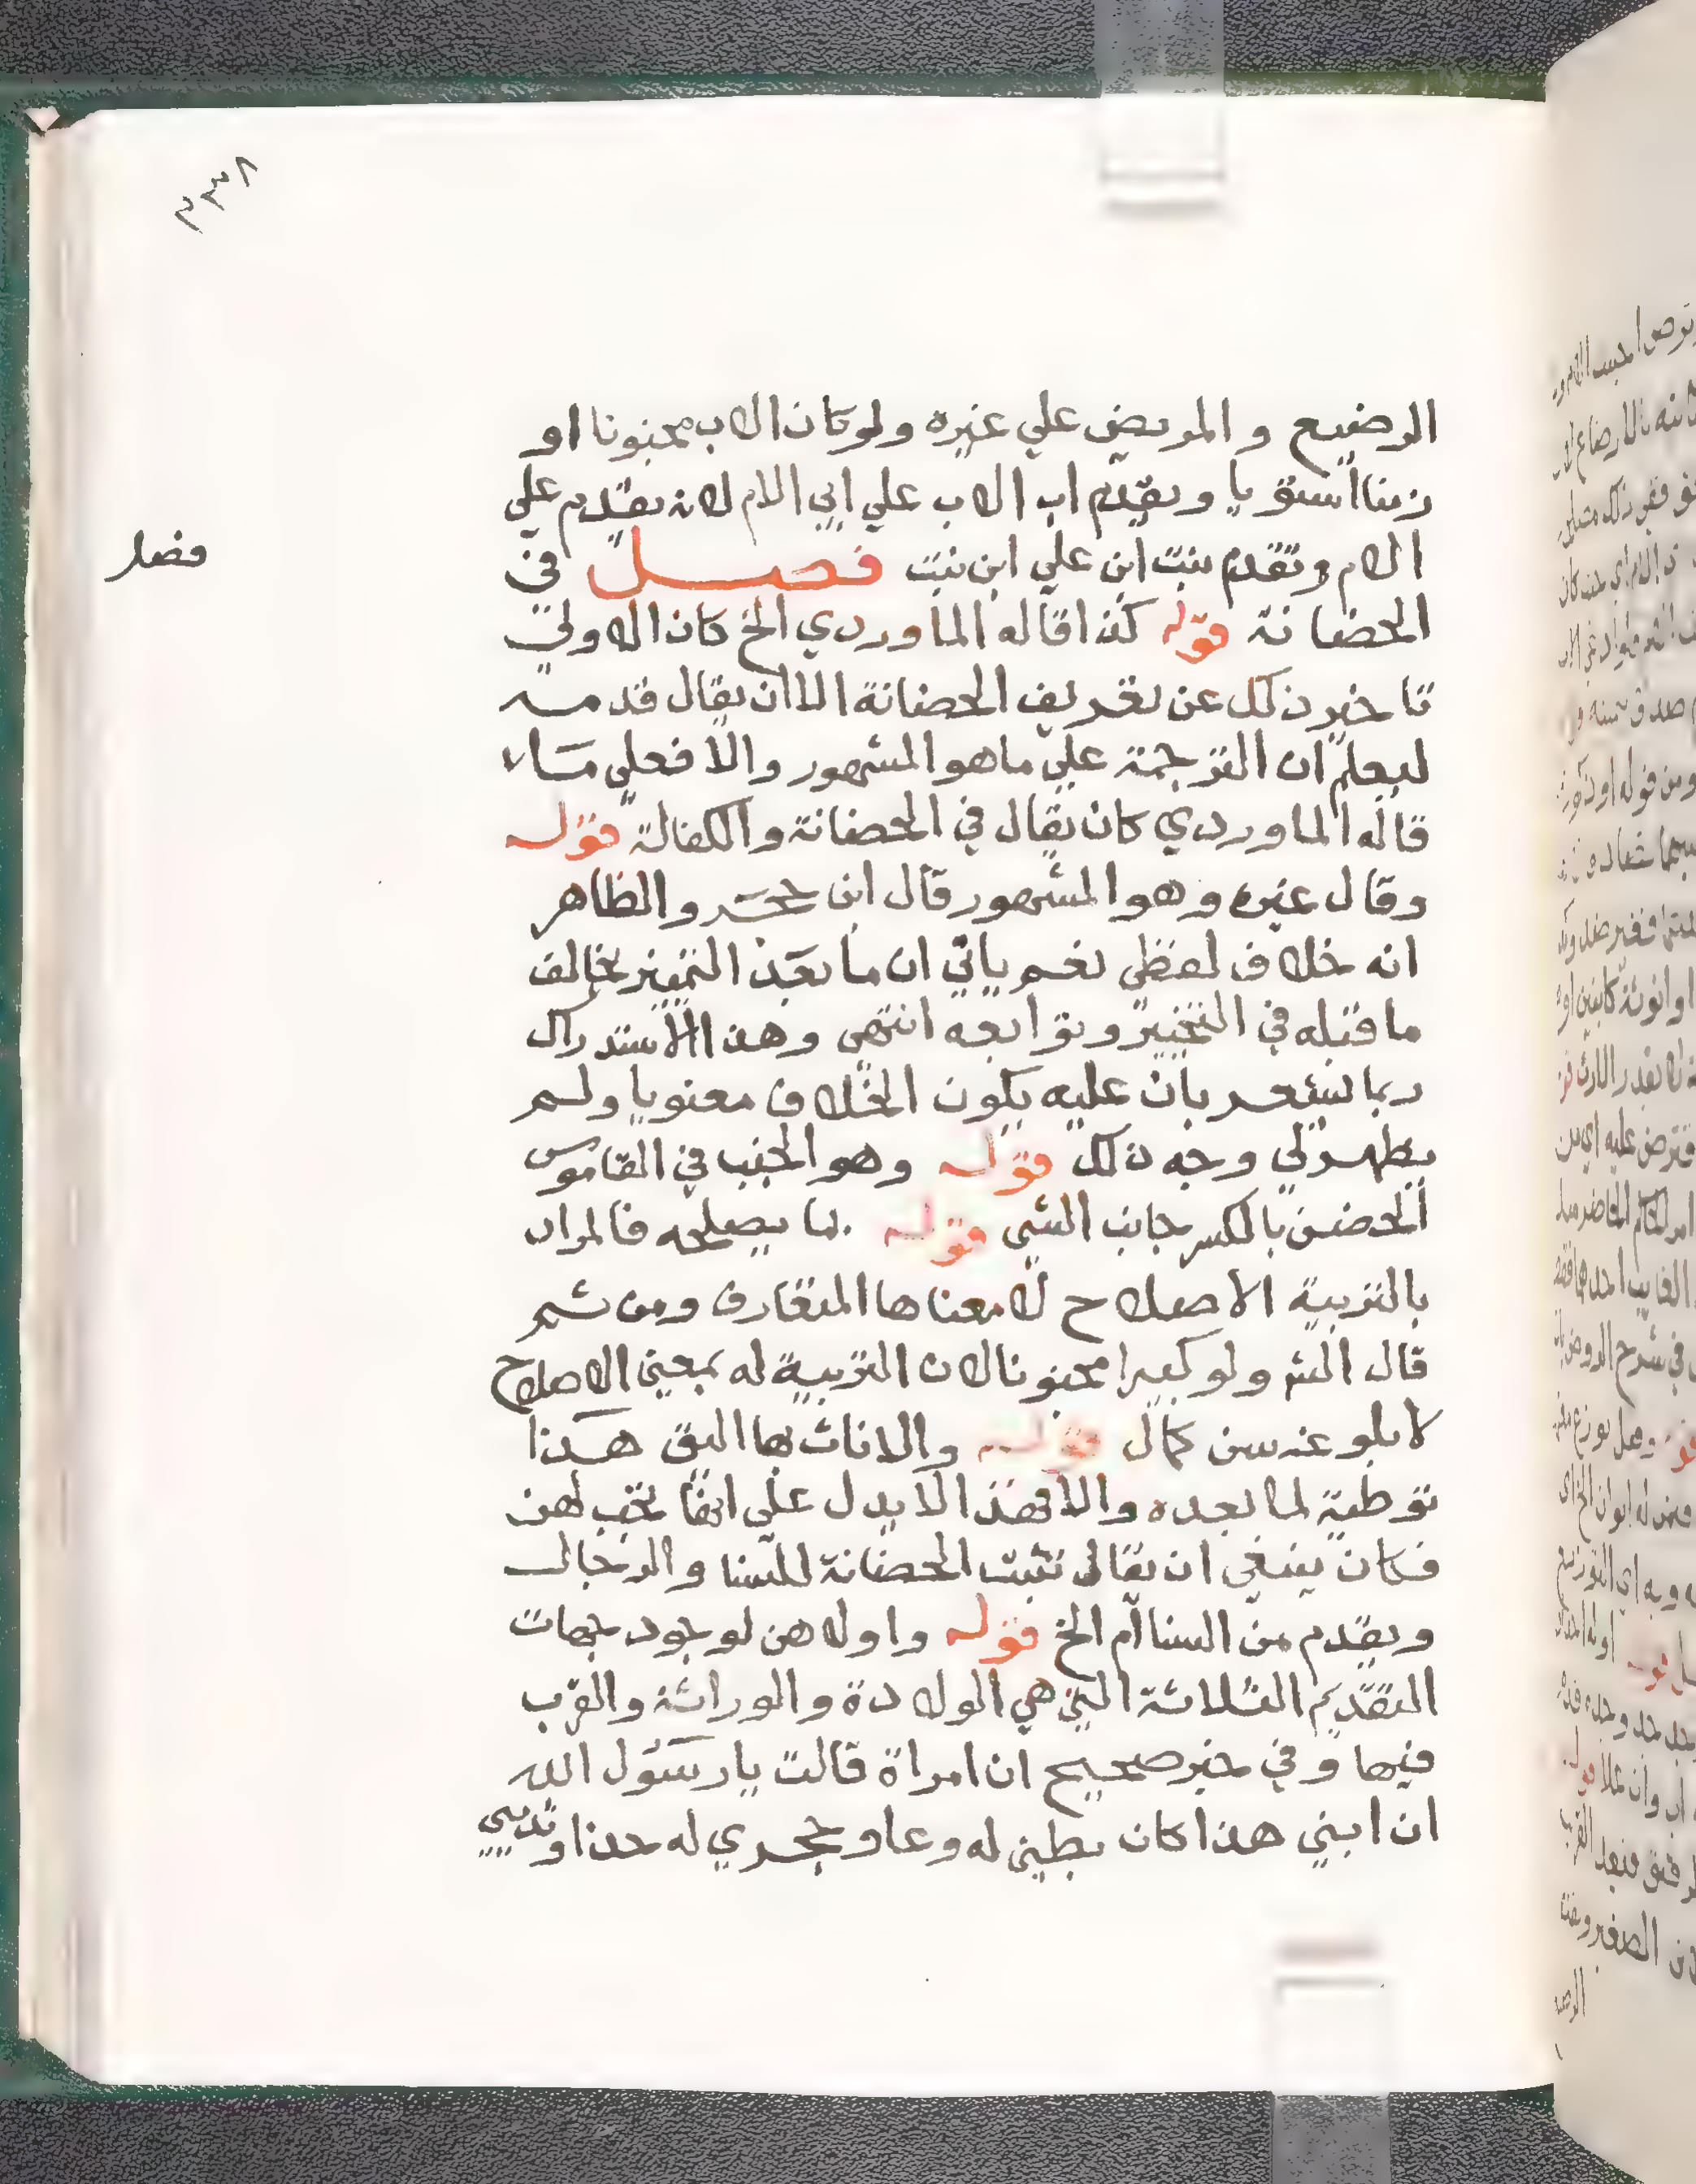 ٣٣٨
الرضيع والمريض علي غيره ولو كان الاب مجنونا او
زمنا استويا ويقدم اب الاب علي ابي الام لانه يقدم علي
الام وتقدم بنت ابن علي ابن بنت فصل في
فصل
الحضانة قوله كذا قاله الماوردي الخ كان الاولي
تاخير ذلك عن تعريف الحضانة الا ان يقال قدمه
ليعلم ان الترجمة علي ما هو المشهور والا فعلي ما
قاله الماوردي كان يقال في الحضانة والكفالة قوله
وقال غيره وهو المشهور قال ابن حجر والظاهر
انه خلاف لفظي نعم ياتي ان ما بعد التمييز يخالف
ما قبله في التخيير وتوابعه انتهي وهذا الاستدراك
ربما يشعر بان عليه يكون الخلاف معنويا ولم
يظهر لي وجه ذلك قوله وهو الجنب في القاموس
الحضن بالكسر جانب الشي قوله بما يصلحه فالمراد
بالتربية الاصلاح لا معناها المتعارف ومن ثم
قال الش ولو كبيرا مجنونا لان التربية له بمعني الاصلاح
لا بلوغه سن كمال قوله والاناث بها اليق هذا
توطية لما بعده والا فهذا لا يدل علي انها تجب لهن
فكان ينبغي ان يقال تثبت الحضانة للنسا والرجال
ويقدم من النسا ام الخ قوله واولاهن لوجود جهات
التقديم الثلاثة التي هي الولادة والوراثة والقرب
فيها وفي خبر صحيح ان امراة قالت يا رسول الله
ان ابني هذا كان بطني له وعا وحجري له حذا وثديي